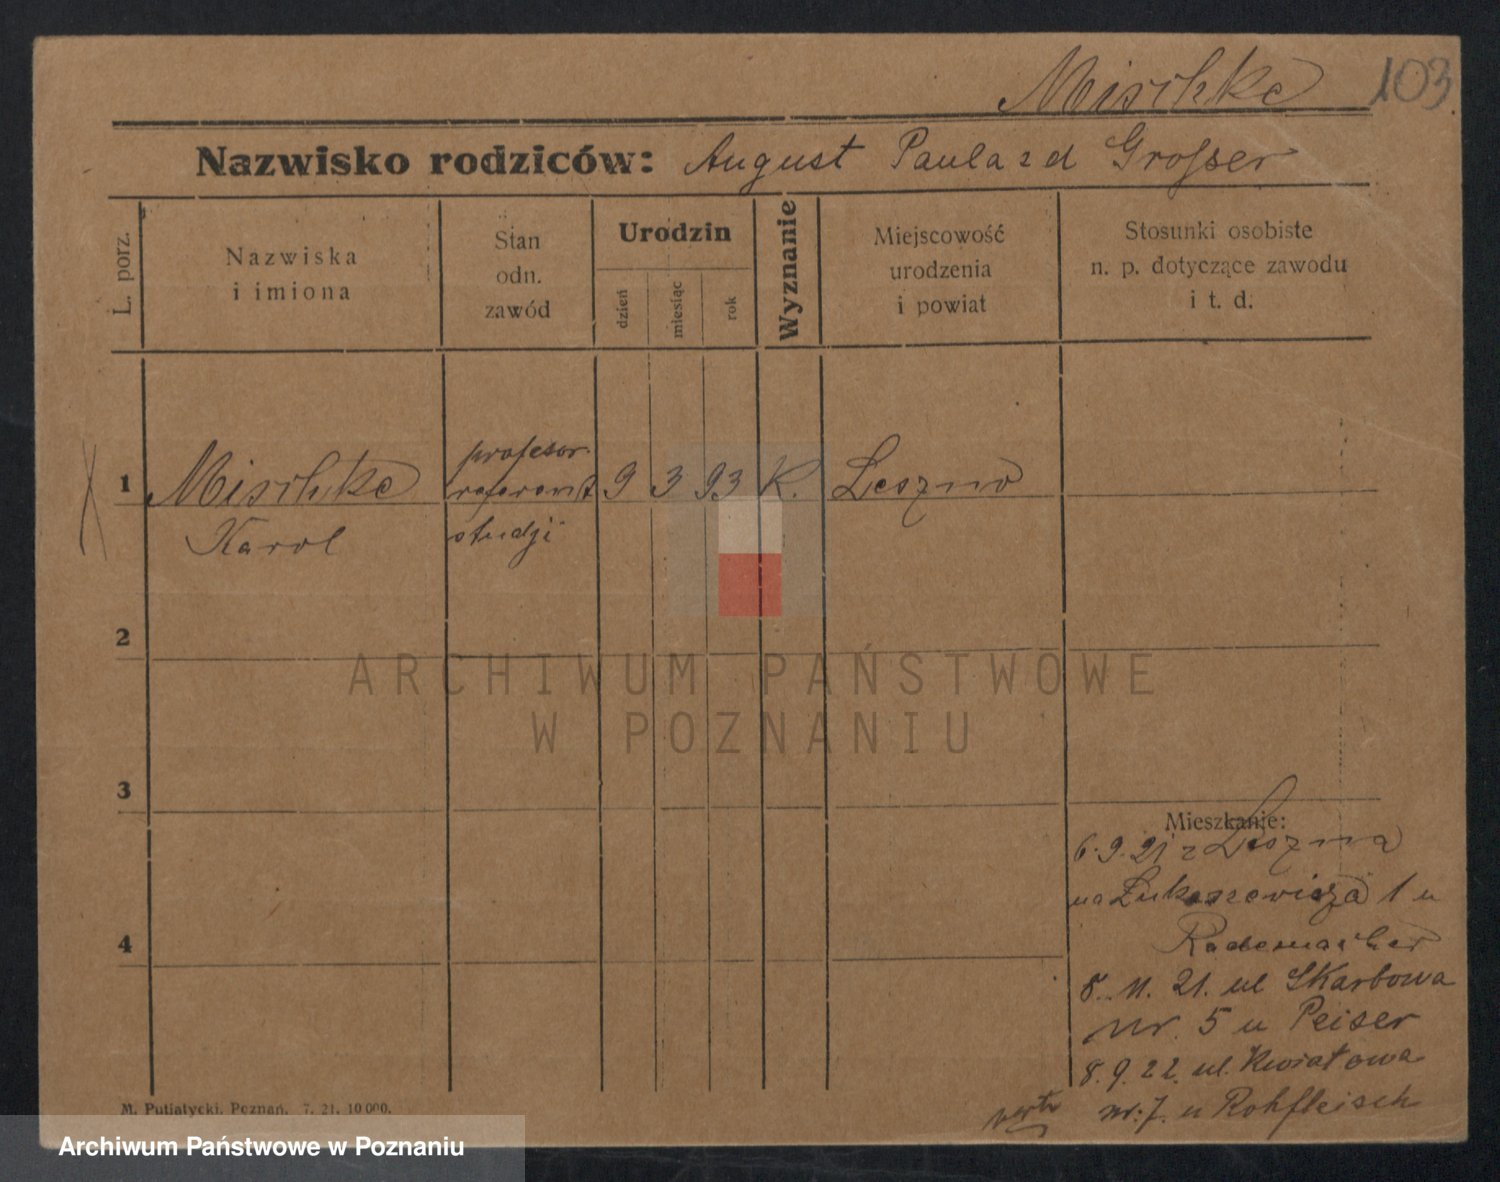 Mischke 103
Nazwisko rodziców: August Paula z d Grosser
L. porz.
Nazwiska
i imiona
Stan
odn.
zawód
Urodzin
dzień
miesiąc
rok
Wyznanie
Miejscowość
urodzenia
i powiat
Stosunki osobiste
n. p. dotyczące zawodu
i t. d.
1 Mischke profesor 9 3 93 K. Leszno
Karol referent
studji
2
ARCHIWUM PAŃSTWOWE
W POZNANIU
3
Mieszkanie:
6.9.21 z Leszna
na Łukaszewicza 1 u
Rademacher
4
8.11.21. ul Skarbowa
nr. 5 u Peiser
8.9.22. ul. Kwiatowa
nr. 7. u Rohfleisch
verte
M. Putiatycki, Poznań. 7. 21. 10000.
Archiwum Państwowe w Poznaniu